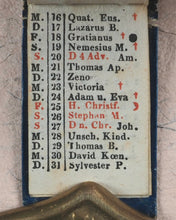 M. 16 Quat. Eus. †
D. 17 Lazarus B.
F. 18 Gratianus †
S. 19 Nemesius M. †
S. 20 D 4 Adv. Am.
M. 21 Thomas Ap.
D. 22 Zeno
M. 23 Victoria †
D. 24 Adam u. Eva †
F. 25 H. Christf.
S. 26 Stephan M.
S. 27 D n. Chr. Joh.
M. 28 Unsch. Kind.
D. 29 Thomas B.
M. 30 David Kœn.
D. 31 Sylvester P.